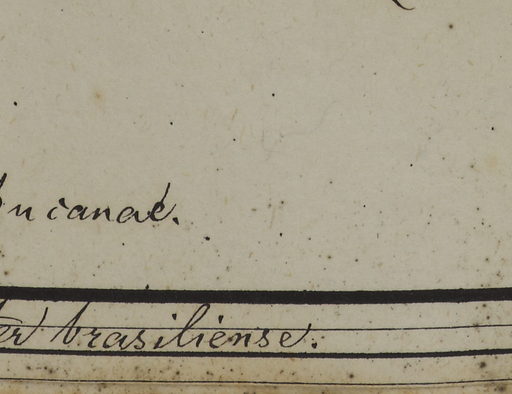 ucanae.
er brasiliense.